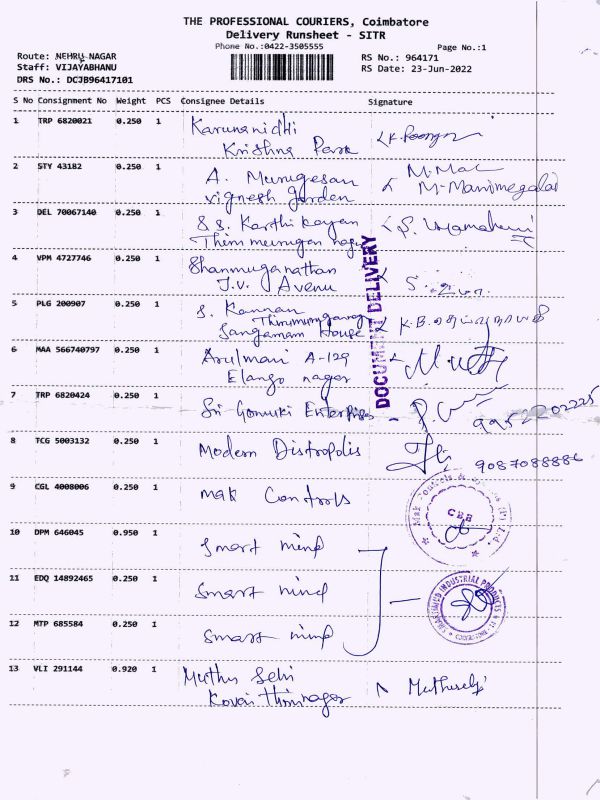 THE PROFESSIONAL COURIERS, Coimbatore
Delivery Runsheet - SITR
Phone No.:0422-3505555 Page No.:1
Route: NEHRU NAGAR RS No.: 964171
Staff: VIJAYABHANU RS Date: 23-Jun-2022
DRS No.: DCJB96417101
S No Consignment No Weight PCS Consignee Details Signature
1 TRP 6820021 0.250 1 Karunanidhi
Krishna Park
2 STY 43182 0.250 1 A. Murugesan M. Mac
Vignesh Garden M. Manimegalai
3 DEL 70067140 0.250 1 S. Karthikayan
Thirumurugan nagar
4 VPM 4727746 0.250 1 Shanmuganathan
J.V. Avenu
5 PLG 200907 0.250 1 S. Kannan
Sangamam House K.B.
6 MAA 566740797 0.250 1 Arulmani A-129
Elango nagar
DOCUMENT DELIVERY
7 TRP 6820424 0.250 1 Sri Gomuki Enterprises
8 TCG 5003132 0.250 1 Modern Distropolis
9 CGL 4008006 0.250 1 Mak Controls
CBE
10 DPM 646045 0.950 1 Smart mind
11 EDQ 14892465 0.250 1 Smart mind
12 MTP 685584 0.250 1 Smart mind
INDUSTRIAL PRODUCTS
13 VLI 291144 0.920 1 Muthu Selvi Muthuselvi
Kovai Thirunagar